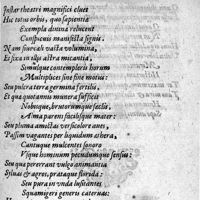 Instar theatri magnifici eluet
Hic totus orbis, quo sapientia
Exempla diuina relucent
Conspicuis manifesta signis.
Nam seu cæli vasta volumina,
Et fixa in illis astra micantia,
Simulque contempleris horum
Multiplices sine fine motus:
Seu pulcra terra germina fertilis,
Et quæ quotannis munera sufficit
Nobisque, brutorumque sectis,
Alma parens facilisque mater:
Seu pluma amictas versicolore aues,
Passim vagantes per liquidum aëra,
Cantuque mulcentes sonoro
Vique hominum pecudumque sensus:
Seu quæ pererrant vulgò animantia
Syluas & agros, prataque florida:
Seu pura in vnda lusitantes
Squamigeri generis cateruas: